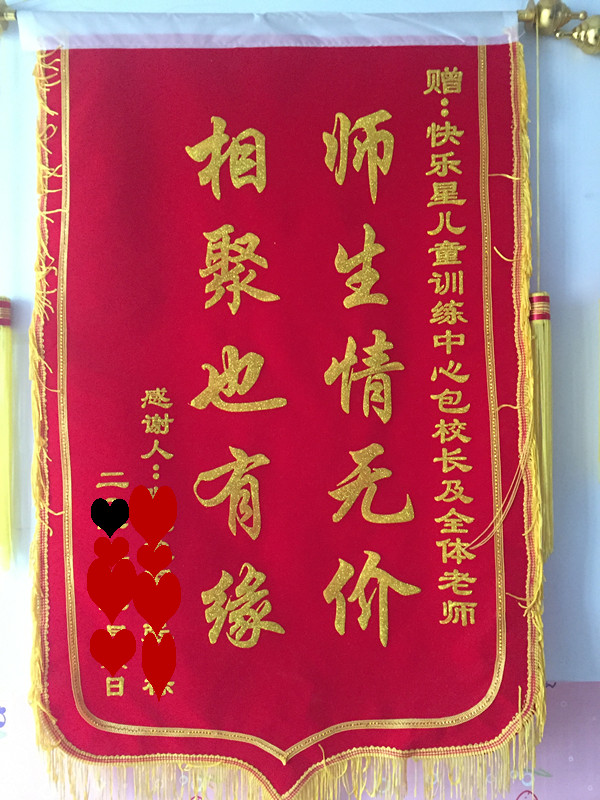 赠:快乐星儿童训练中心包校长及全体老师
师生情无价
相聚也有缘
感谢人:
二
日